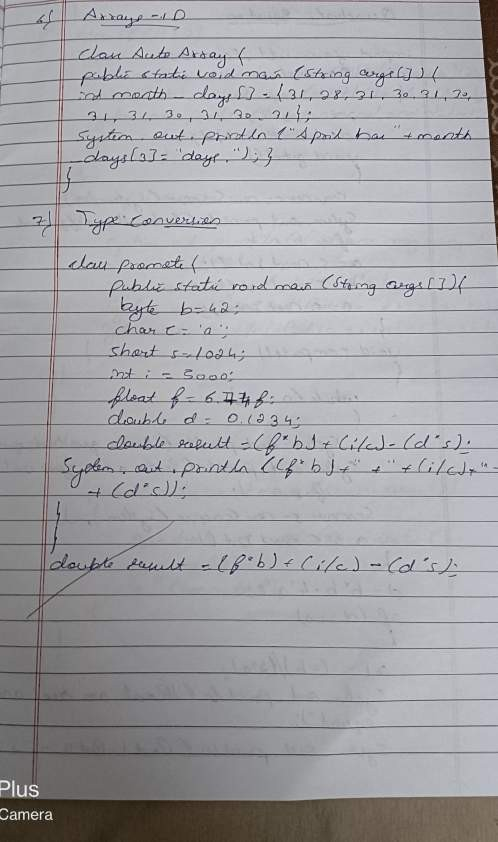 6) Arrays - 1D
class AutoArray {
public static void main (String args[]) {
int month - days[] = {31, 28, 31, 30, 31, 30,
31, 31, 30, 31, 30, 31};
System. out. println ("April has" + month
days[3] = "days."); }
}
7) Type Conversion
class promote {
public static void main (String args[]) {
byte b = 42;
char c = 'a';
short s = 1024;
int i = 5000;
float f =
double d = 0.1234;
double result = (f*b) + (i/c) - (d*s);
System. out. println ((f*b) + " + " + (i/c) + " -
+ (d*s));
}
}
double result = (f*b) + (i/c) - (d*s);
Plus
Camera